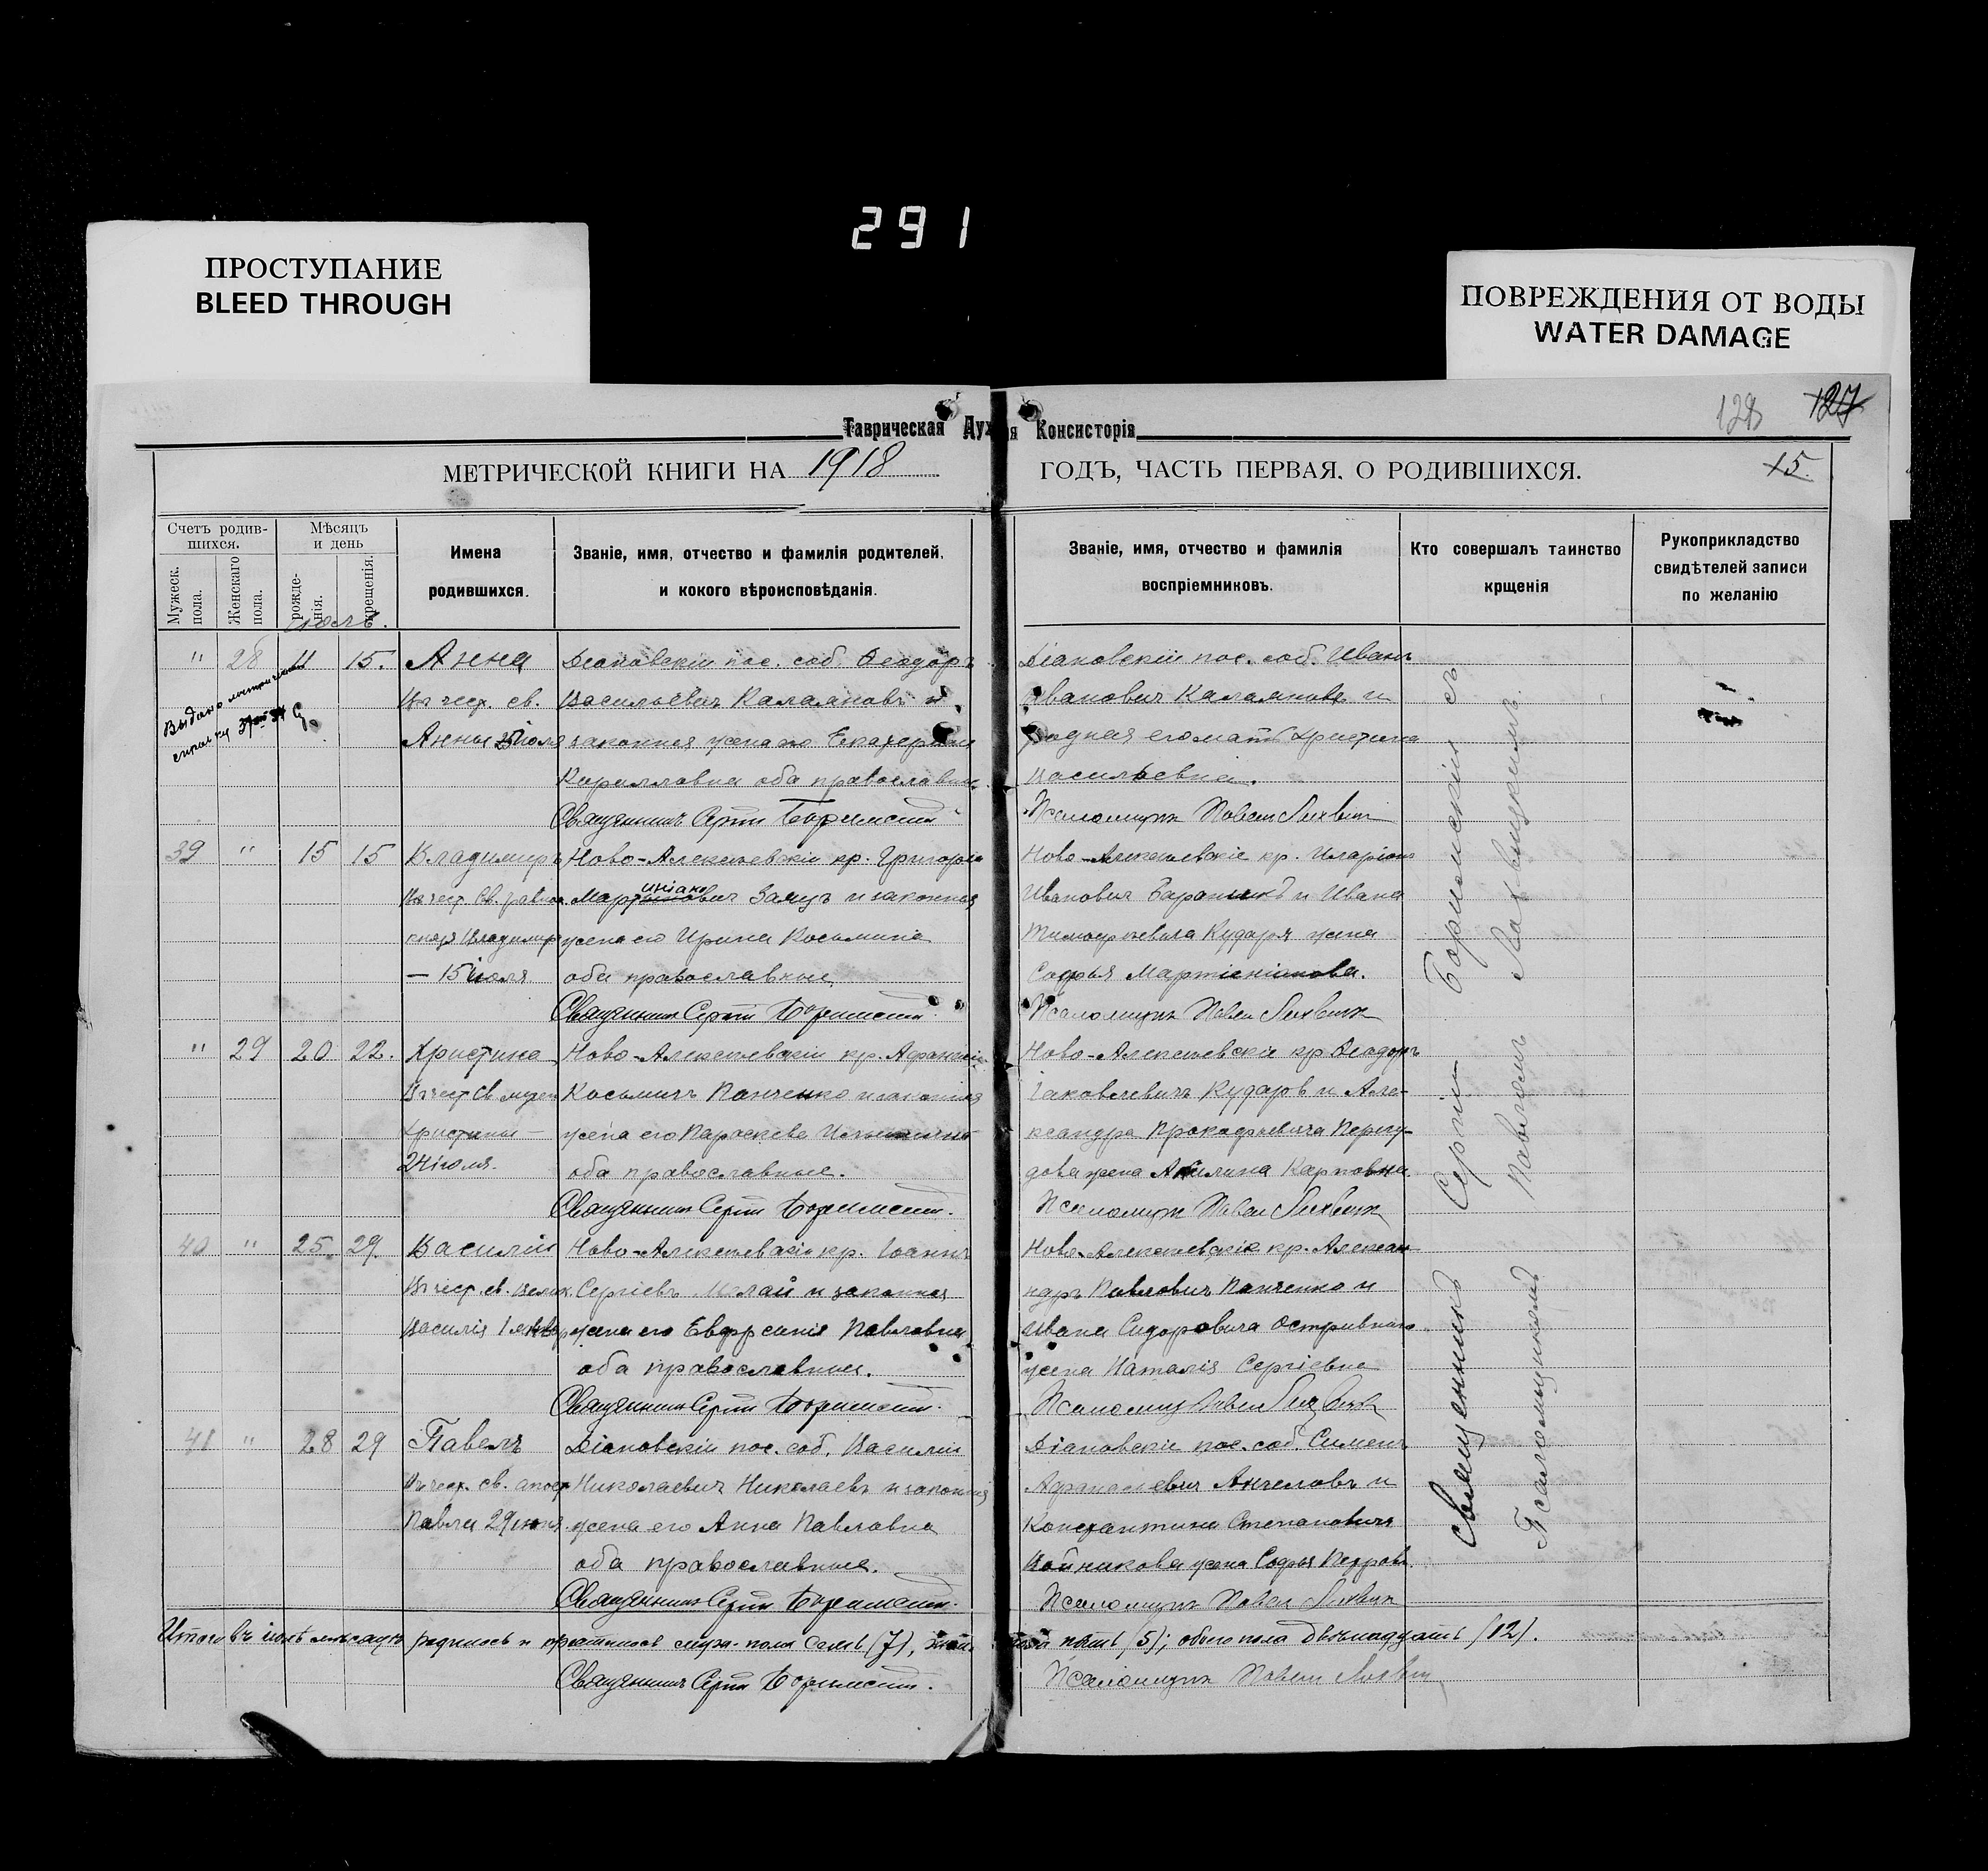 291
ПРОСТУПАНИЕ
BLEED THROUGH
ПОВРЕЖДЕНИЯ ОТ ВОДЫ
WATER DAMAGE
129 127
Таврическая Дух я Консисторія
МЕТРИЧЕСКОЙ КНИГИ НА 1918
ГОДЪ, ЧАСТЬ ПЕРВАЯ, О РОДИВШИХСЯ.
15
Счетъ родив-
шихся.
Мужеск.
пола.
Женскаго
пола.
Мѣсяцъ
и день
рожде-
нія.
крещенія.
Имена
родившихся.
Званіе, имя, отчество и фамилія родителей,
и кокого вѣроисповѣданія.
Званіе, имя, отчество и фамилія
воспріемниковъ.
Кто совершалъ таинство
крщенія
Рукоприкладство
свидѣтелей записи
по желанію
Іюль.
" 28 11 15. Анна
Въ чест. св.
Анны 25 Іюля
Выдано
справку
Діановскій пос. соб. Ѳеодоръ
Васильевич Калаяновъ и
законная жена его Екатерина
Кирилловна оба православные
Священникъ Сергій Боримскій
Діановскій пос. соб. Иванъ
Ивановичъ Калаяновъ и
родная его мать Христина
Васильевна.
Псаломщикъ Павел Лихвицк
39 " 15 15 Владимиръ
Въ чест. Св. равноап.
князя Владимира
— 15 Іюля
Ново-Алексѣевскій кр. Григорій
Мартынович Заяцъ и законная
жена его Ирина Косьмина
оба православные
Священникъ Сергій Боримскій
Ново-Алексѣевскіе кр. Иларіонъ
Иванович и Ивана
Тимофѣевича Кударя жена
Софья
Псаломщикъ Павел Лихвицк
" 29 20 22. Христина
Въ чест. Св. мучен.
Христины —
24 іюля.
Ново-Алексѣевскій кр. Афанасій
Косьмичъ Панченко и законная
жена его Параскева
оба православные.
Священникъ Сергій Боримскій.
Ново-Алексѣевскіе кр. Ѳеодоръ
Іаковлевичъ Кударовъ и Але-
ксандра Прокофьевича Перегу-
дова жена Акилина Карповна.
Псаломщик Павел Лихвицк
40 " 25 29. Василій
Въ чест. св. Велик.
Василія 1 января
Ново-Алексѣевскій кр. Іоаннъ
Сергіевъ и законная
жена его Евфрсинія Павловна
оба православные.
Священникъ Сергій Боримскій.
Ново-Алексѣевскіе кр. Алексан-
ндръ Павлович Панченко и
Ивана Сидоровича Остривного
жена Наталія Сергіевна
Псаломщ Павел Лихвицк
41 " 28 29 Павелъ
Въ чест. св. апост
Павла 29 іюня.
Діановскій пос. соб. Василій
Николаевич Николаевъ и законная
жена его Анна Павловна
оба православные.
Священникъ Сергій Боримскій.
Діановскіе пос. соб. Симеонъ
Афанасіевич Ангеловъ и
Константина Степановича
Войникова жена Софья Петровн.
Псаломщикъ Павел Лихвицк
Священникъ Сергій Боримскій съ
Псаломщикомъ Павломъ Лихвицкимъ.
Итого въ іюлѣ мѣсяцѣ родилось и крестилось муж. пола Семь (7), жен. пола пять (5); обоего пола двѣнадцать (12).
Священникъ Сергій Боримскій.
Псаломщикъ Павел Лихвицк